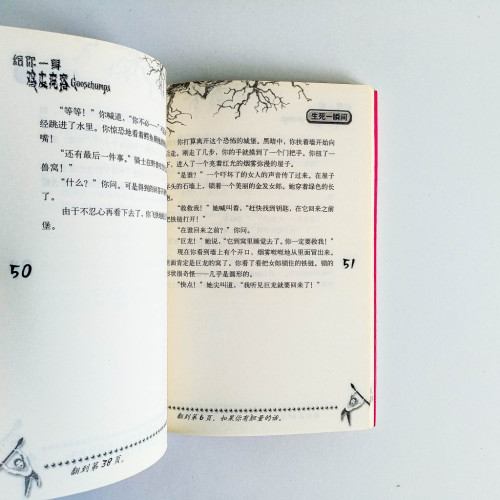 给你一身
鸡皮疙瘩 Goosebumps
"等等!"你喊道,"你不必——"
经跳进了水里。你惊恐地看着鳄鱼
嘴!
"还有最后一件事。"骑士在
兽窝!"
"什么?"你问。可是得到的
了。
由于不忍心再看下去了,你飞
堡。
50
翻到第38页。
生死一瞬间
你打算离开这个恐怖的城堡。黑暗中,你扶着墙开始向
后走。刚走了几步,你的手就摸到了一个门把手。你扭了一
下,进入了一个亮着红光的烟雾弥漫的屋子。
"是谁?"一个吓坏了的女人的声音传了过来。在屋子
尽头的石墙上,锁着一个美丽的金发女郎。她穿着绿色的长
袍。
"救救我!"她喊叫着,"赶快找到钥匙,在它回来之前
把铁链打开!"
"在谁回来之前?"你问。
"巨龙!"她说,"它到窝里睡觉去了。你一定要救我!"
现在你看到墙上有个开口,烟雾咝咝地从里面冒出来。
里面肯定是巨龙的窝了。你看了看把女郎锁住的铁链。锁的
形状很奇怪——几乎是圆形的。
"快点!"她尖叫道,"我听见巨龙就要回来了!"
51
翻到第6页,如果你有胆量的话。